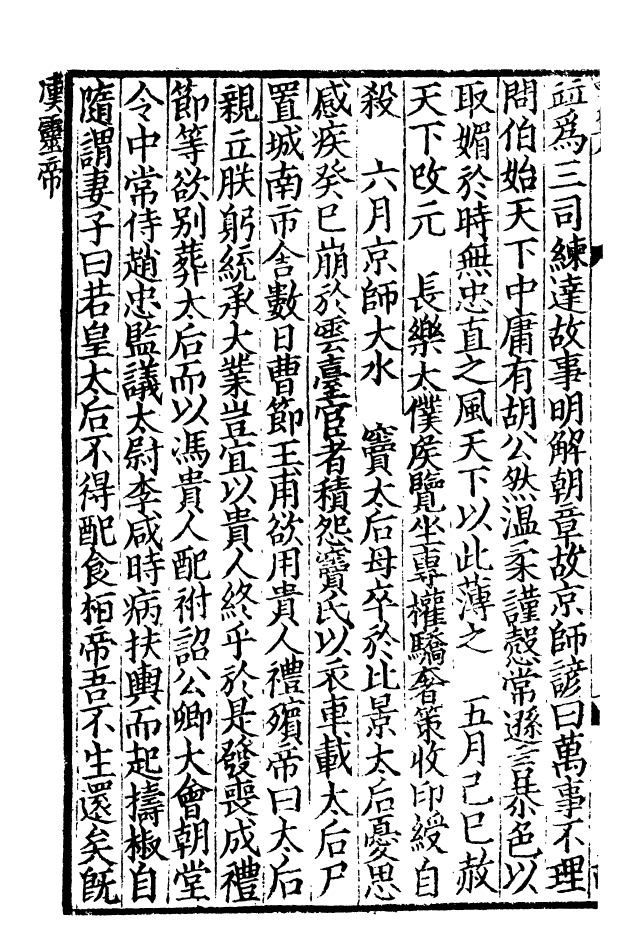 並爲三司練達故事明解朝章故京師諺曰萬事不理
問伯始天下中庸有胡公然温柔謹慤常遜言恭色以
取媚於時無忠直之風天下以此薄之　五月己巳赦
天下改元　長樂太僕侯覽坐專權驕奢策收印綬自
殺　六月京師大水　竇太后母卒於比景太后憂思
感疾癸巳崩於雲臺宦者積怨竇氏以衣車載太后尸
置城南市舍數日曹節王甫欲用貴人禮殯帝曰太后
親立朕躬統承大業豈宜以貴人終乎於是發喪成禮
節等欲别葬太后而以馮貴人配祔詔公卿大會朝堂
令中常侍趙忠監議太尉李咸時病扶輿而起擣椒自
隨謂妻子曰若皇太后不得配食桓帝吾不生還矣旣
漢靈帝